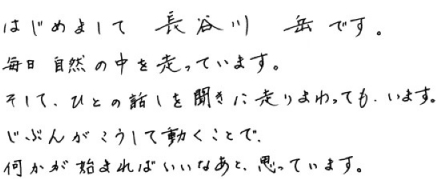 はじめまして 長谷川 岳です。
毎日 自然の中を走っています。
そして、ひとの話しを聞きに走りまわっても、います。
じぶんがこうして動くことで、
何かが始まればいいなあと、思っています。